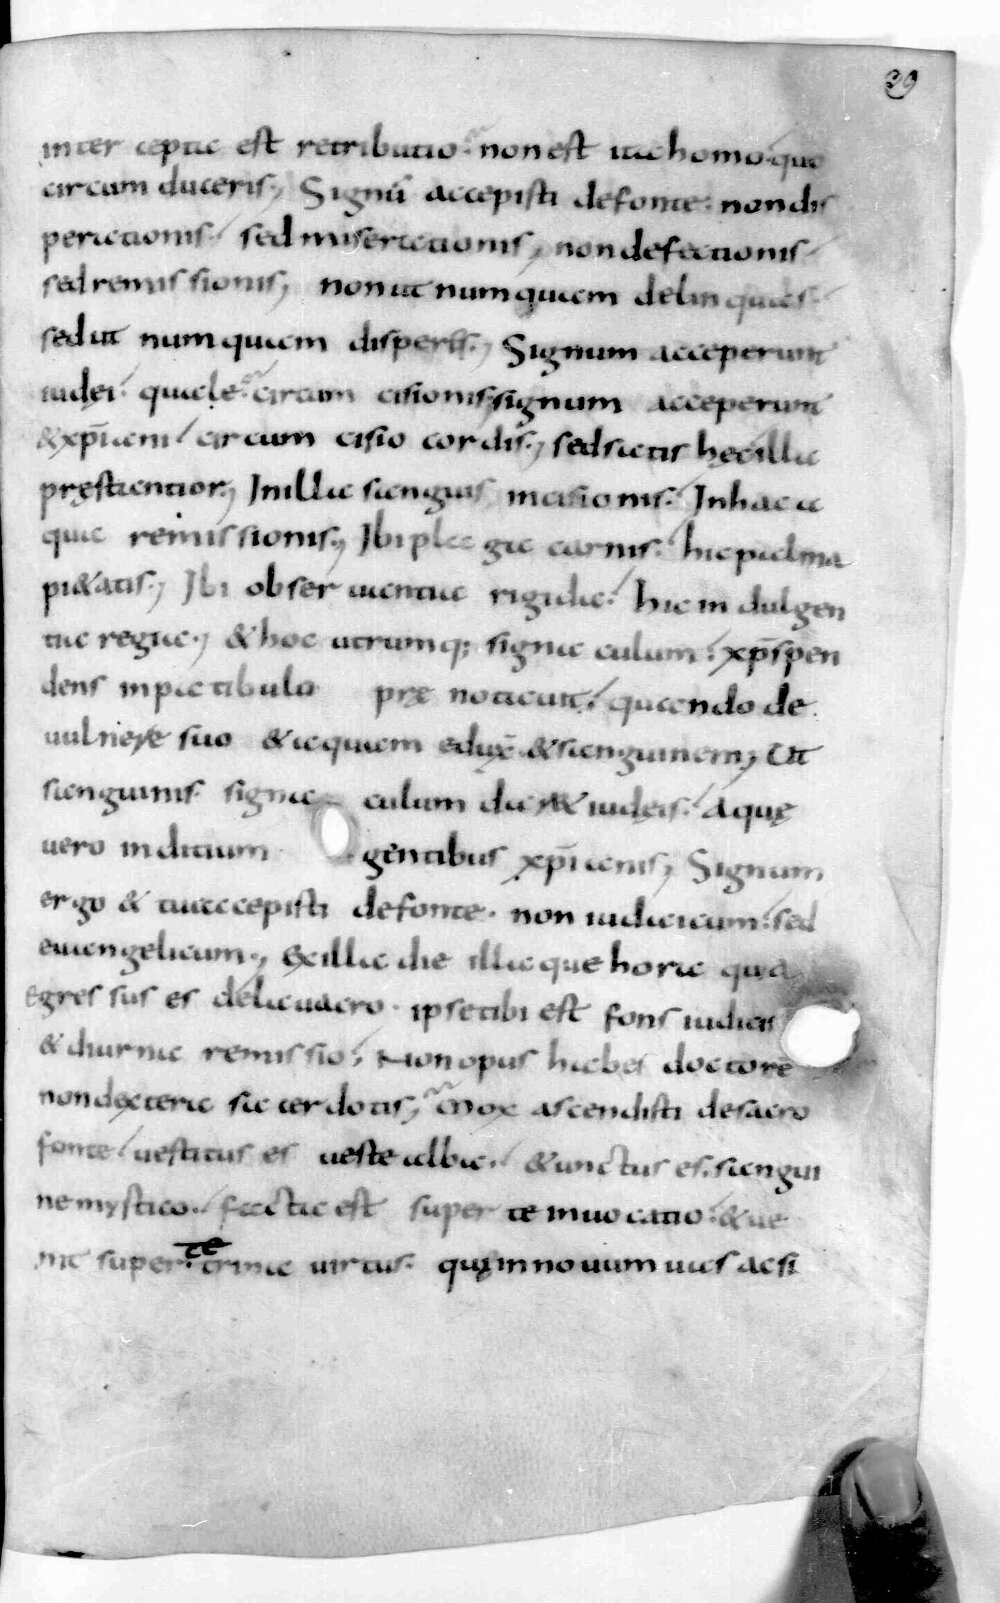 39
inter cepta est retributio. non est ita homo. quo
circum duceris; Signū accepisti defonte. non dis
peraationis. sed miserationis; non defectionis
sed remissionis; non ut numquam delinquas.
sed ut numquam disperis; Signum acceperunt
iudęi. quale circum cisionis; signum acceperunt
& xp̄iani circum cisio cordis; sed satis hęc illa
pręstantior; In illa sanguis incisionis. In hac a
qua remissionis; Ibi plaga carnis. hic palma
pi&atis; Ibi obseruantia rigida. hic indulgen
tia regia; & hoc utrumq; signa culum. xp̄s pen
dens inpatibulo prę notauit. quando de
uulnere suo & aquam eduxē & sanguinem; Ut
sanguinis signa culum dar& iudęis. Aquę
uero inditium gentibus xp̄ianis; Signum
ergo & tu accepisti defonte. non iudaicum. sed
euangelicum; Ex illa die illaque hora qua
egressus es delauacro. ipse tibi est fons iudicis
& diurna remissio; Non opus habes doctorē
non dextera sacerdotis; Mox ascendisti desacro
fonte uestitus es ueste alba. & unctus es. sangui
ne mystico. facta est super te inuocatio. & ue
nit super te trina uirtus. quę in nouum uas ac si